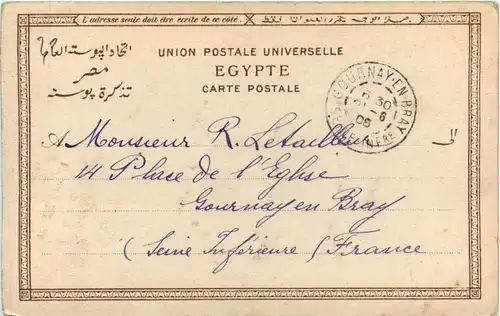 L'adresse seule doit être écrite de ce côté.
UNION POSTALE UNIVERSELLE
EGYPTE
CARTE POSTALE
مصر
تذكرة بوسته
GOURNAY-EN-BRAY
30
6
05
A Monsieur R. Letailleur
14 Place de l'Eglise
Gournay en Bray
(Seine Inférieure) France